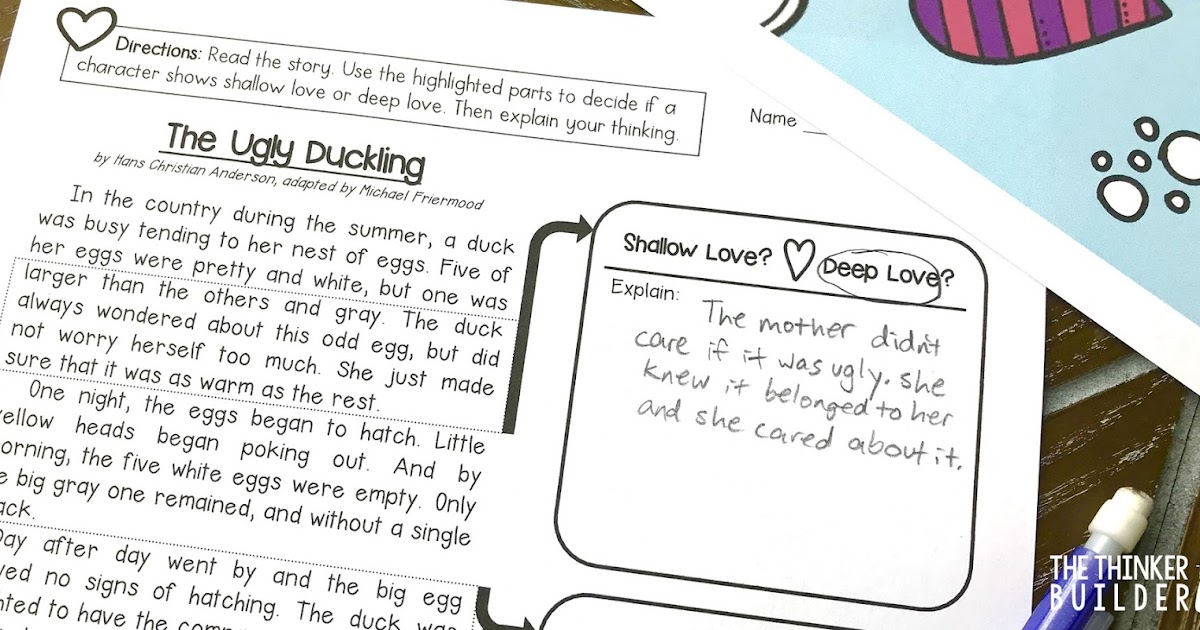 Directions: Read the story. Use the highlighted parts to decide if a
character shows shallow love or deep love. Then explain your thinking.
Name
The Ugly Duckling
by Hans Christian Anderson, adapted by Michael Friermood
In the country during the summer, a duck
was busy tending to her nest of eggs. Five of
her eggs were pretty and white, but one was
larger than the others and gray. The duck
always wondered about this odd egg, but did
not worry herself too much. She just made
sure that it was as warm as the rest.
One night, the eggs began to hatch. Little
yellow heads began poking out. And by
morning, the five white eggs were empty. Only
big gray one remained, and without a single
Day after day went by and the big egg
no signs of hatching. The duck was
to have the
Shallow Love? Deep Love?
Explain:
The mother didn't
care if it was ugly. she
knew it belonged to her
and she cared about it.
THE THINKER
BUILDER